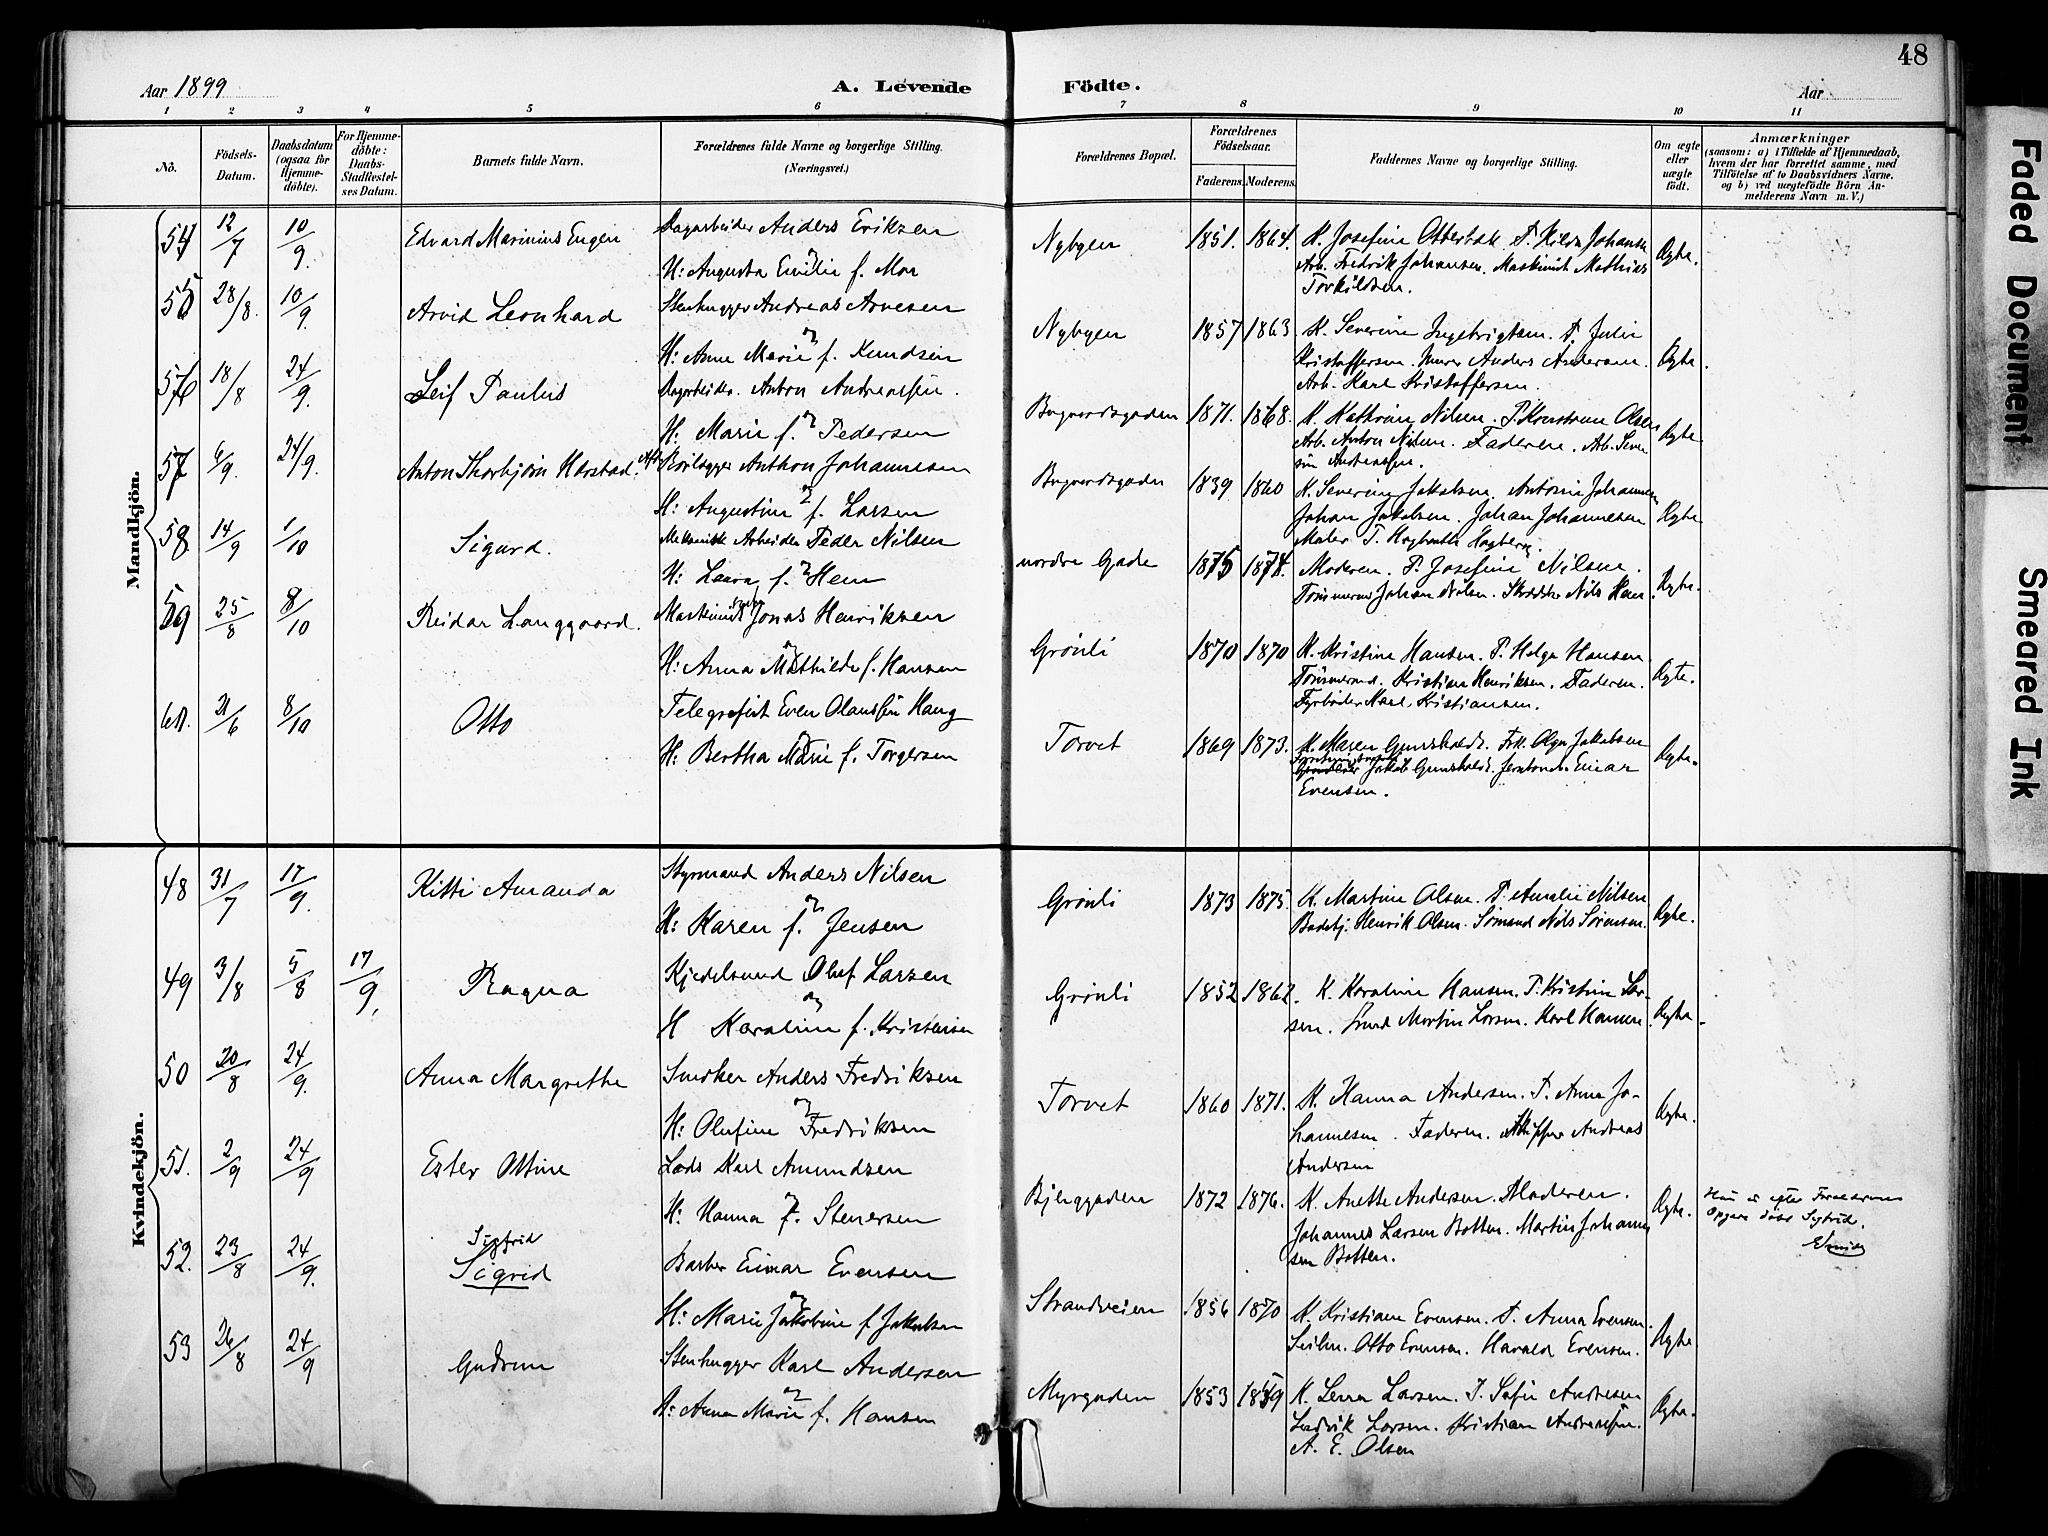 48
Aar 1899
A. Levende
Födte.
Aar
1 2 3 4 5 6 7 8 9 10 11
No.
Födsels-Datum.
Daabsdatum (ogsaa for Hjemme-döbte).
For Hjemme-döbte: Daabs-Stadfæstel-ses Datum.
Barnets fulde Navn.
Forældrenes fulde Navne og borgerlige Stilling.
(Næringsvei.)
Forældrenes Bopæl.
Forældrenes Födselsaar.
Faderens. Moderens.
Faddernes Navne og borgerlige Stilling.
Om ægte eller uægte födt.
Anmærkninger
(saasom: a) i Tilfælde af Hjemmedaab,
hvem der har forrettet samme, med
Tilföielse af to Daabsvidners Navne,
og b) ved uægtefödte Börn An-
melderens Navn m. V.)
Mandkjön.
54 12/7 10/9. Edvard Marinius Eugen Dagarbeider Anders Eriksen
H: Augusta Emilie f. Moe
Nybyen 1851. 1864. K. Josefine Otterbæk. P. Hilda Johansen
Arb. Fredrik Johansen. Maskinist Mathias
Torkildsen.
Ægte.
55 28/8. 10/9. Arvid Leonhard Stenhugger Andreas Arnesen
og
H: Anne Marie f. Knudsen
Nybyen 1857 1863 K. Severine Ingebrigtsen. P. Julie
Kristoffersen. Murer Anders Andersen.
Arb. Karl Kristoffersen.
Ægte.
56 18/8 24/9. Leif Paulus Dagarbeider. Anton Andreassen.
og
H: Marie f. Pedersen
1871. 1868. K. Kathrine Nilsen. P. Konstanse Olsen
Arb. Anton Nilsen. Faderen. Arb. Seve-
rin Andreassen.
Ægte
57 6/9. 24/9. Anton Thorbjørn Harstad. Anthon Johannesen
og
H: Augustine f. Larsen
1839 1860 K. Severine Jakobsen. Antonie Johannesen
Johan Jakobsen. Johan Johannesen
Maler T. Hagbarth Hagberg.
Ægte
58 14/9 1/10 Sigurd. Mekanisk Arbeider Peder Nilsen
og
H: Laura f. Hem
nordre Gade 1875 1874. Moderen. P. Josefine Nilsen.
Tømmermd Johan Nilsen. Nils Hem
Ægte.
59 25/8 8/10 Reidar Langgaard. Maskinist Jonas Henriksen
og
H: Anna Mathilde f. Hansen
Grönli 1870 1870 K. Kristine Hansen. P. Helga Hansen
Tömmermd. Kristian Henriksen. Faderen.
Fyrbøder Karl Kristiansen.
Ægte.
60. 21/6 8/10 Otto Telegrafist Even Olaussen Haug
og
H: Bertha Marie f. Torgersen
Torvet 1869 1873. K. Maren Gunsholdt. Frk. Olga Jakobsen
Jakob Gunsholdt. Einar
Evensen.
Ægte.
Kvindekjön.
48 31/7 17/9. Kitti Amanda Styrmand Anders Nilsen
og
H: Karen f. Jensen
Grönli 1873 1875. K. Martine Olsen. P. Amalie Nilsen
Badebj. Henrik Olsen. Sømand Nils Sørensen.
Ægte.
49 3/8 5/8 17/9. Ragna Kjedelsmed Oluf Larsen
og
H Karoline f. Kristensen
Grönli 1852 1862. K. Karoline Hansen. P. Kristine Lar-
sen. Smed Martin Larsen. Karl Hansen
Ægte.
50 20/8 24/9. Anna Margrethe Snedker Anders Fredriksen
og
H: Olufine Fredriksen
Torvet 1860 1871. K. Hanna Andersen. P. Anna Jo-
hannesen. Faderen. Skipper Andreas
Andersen
Ægte.
51. 2/9 24/9 Ester Ottine Lods Karl Amundsen
H: Hanna f. Stenersen
Bjerggaden 1872 1876. K. Anette Andersen. Moderen.
Johannes Larsen Botten. Martin Johanne-
sen Botten.
Ægte.
52. 23/8 24/9. Sigfrid
Sigrid
Barber Einar Evensen
og
H: Marie Jakobine f. Jakobsen
Strandveien 1856 1870 K. Kristiane Evensen. P. Anna Evensen.
Otto Evensen. Harald Evensen.
Ægte
Hun er efter Forældrenes
Opgave döbt Sigfrid.
53 26/8 24/9 Gudrun Stenhugger Karl Andersen
og
H: Anna Marie f. Hansen
Myrgaden 1853 1859 K. Lena Larsen. P. Sofie Andresen
Ludvik Larsen. Kristian Andreassen.
A. E. Olsen
Ægte.
Faded Document
Smeared Ink